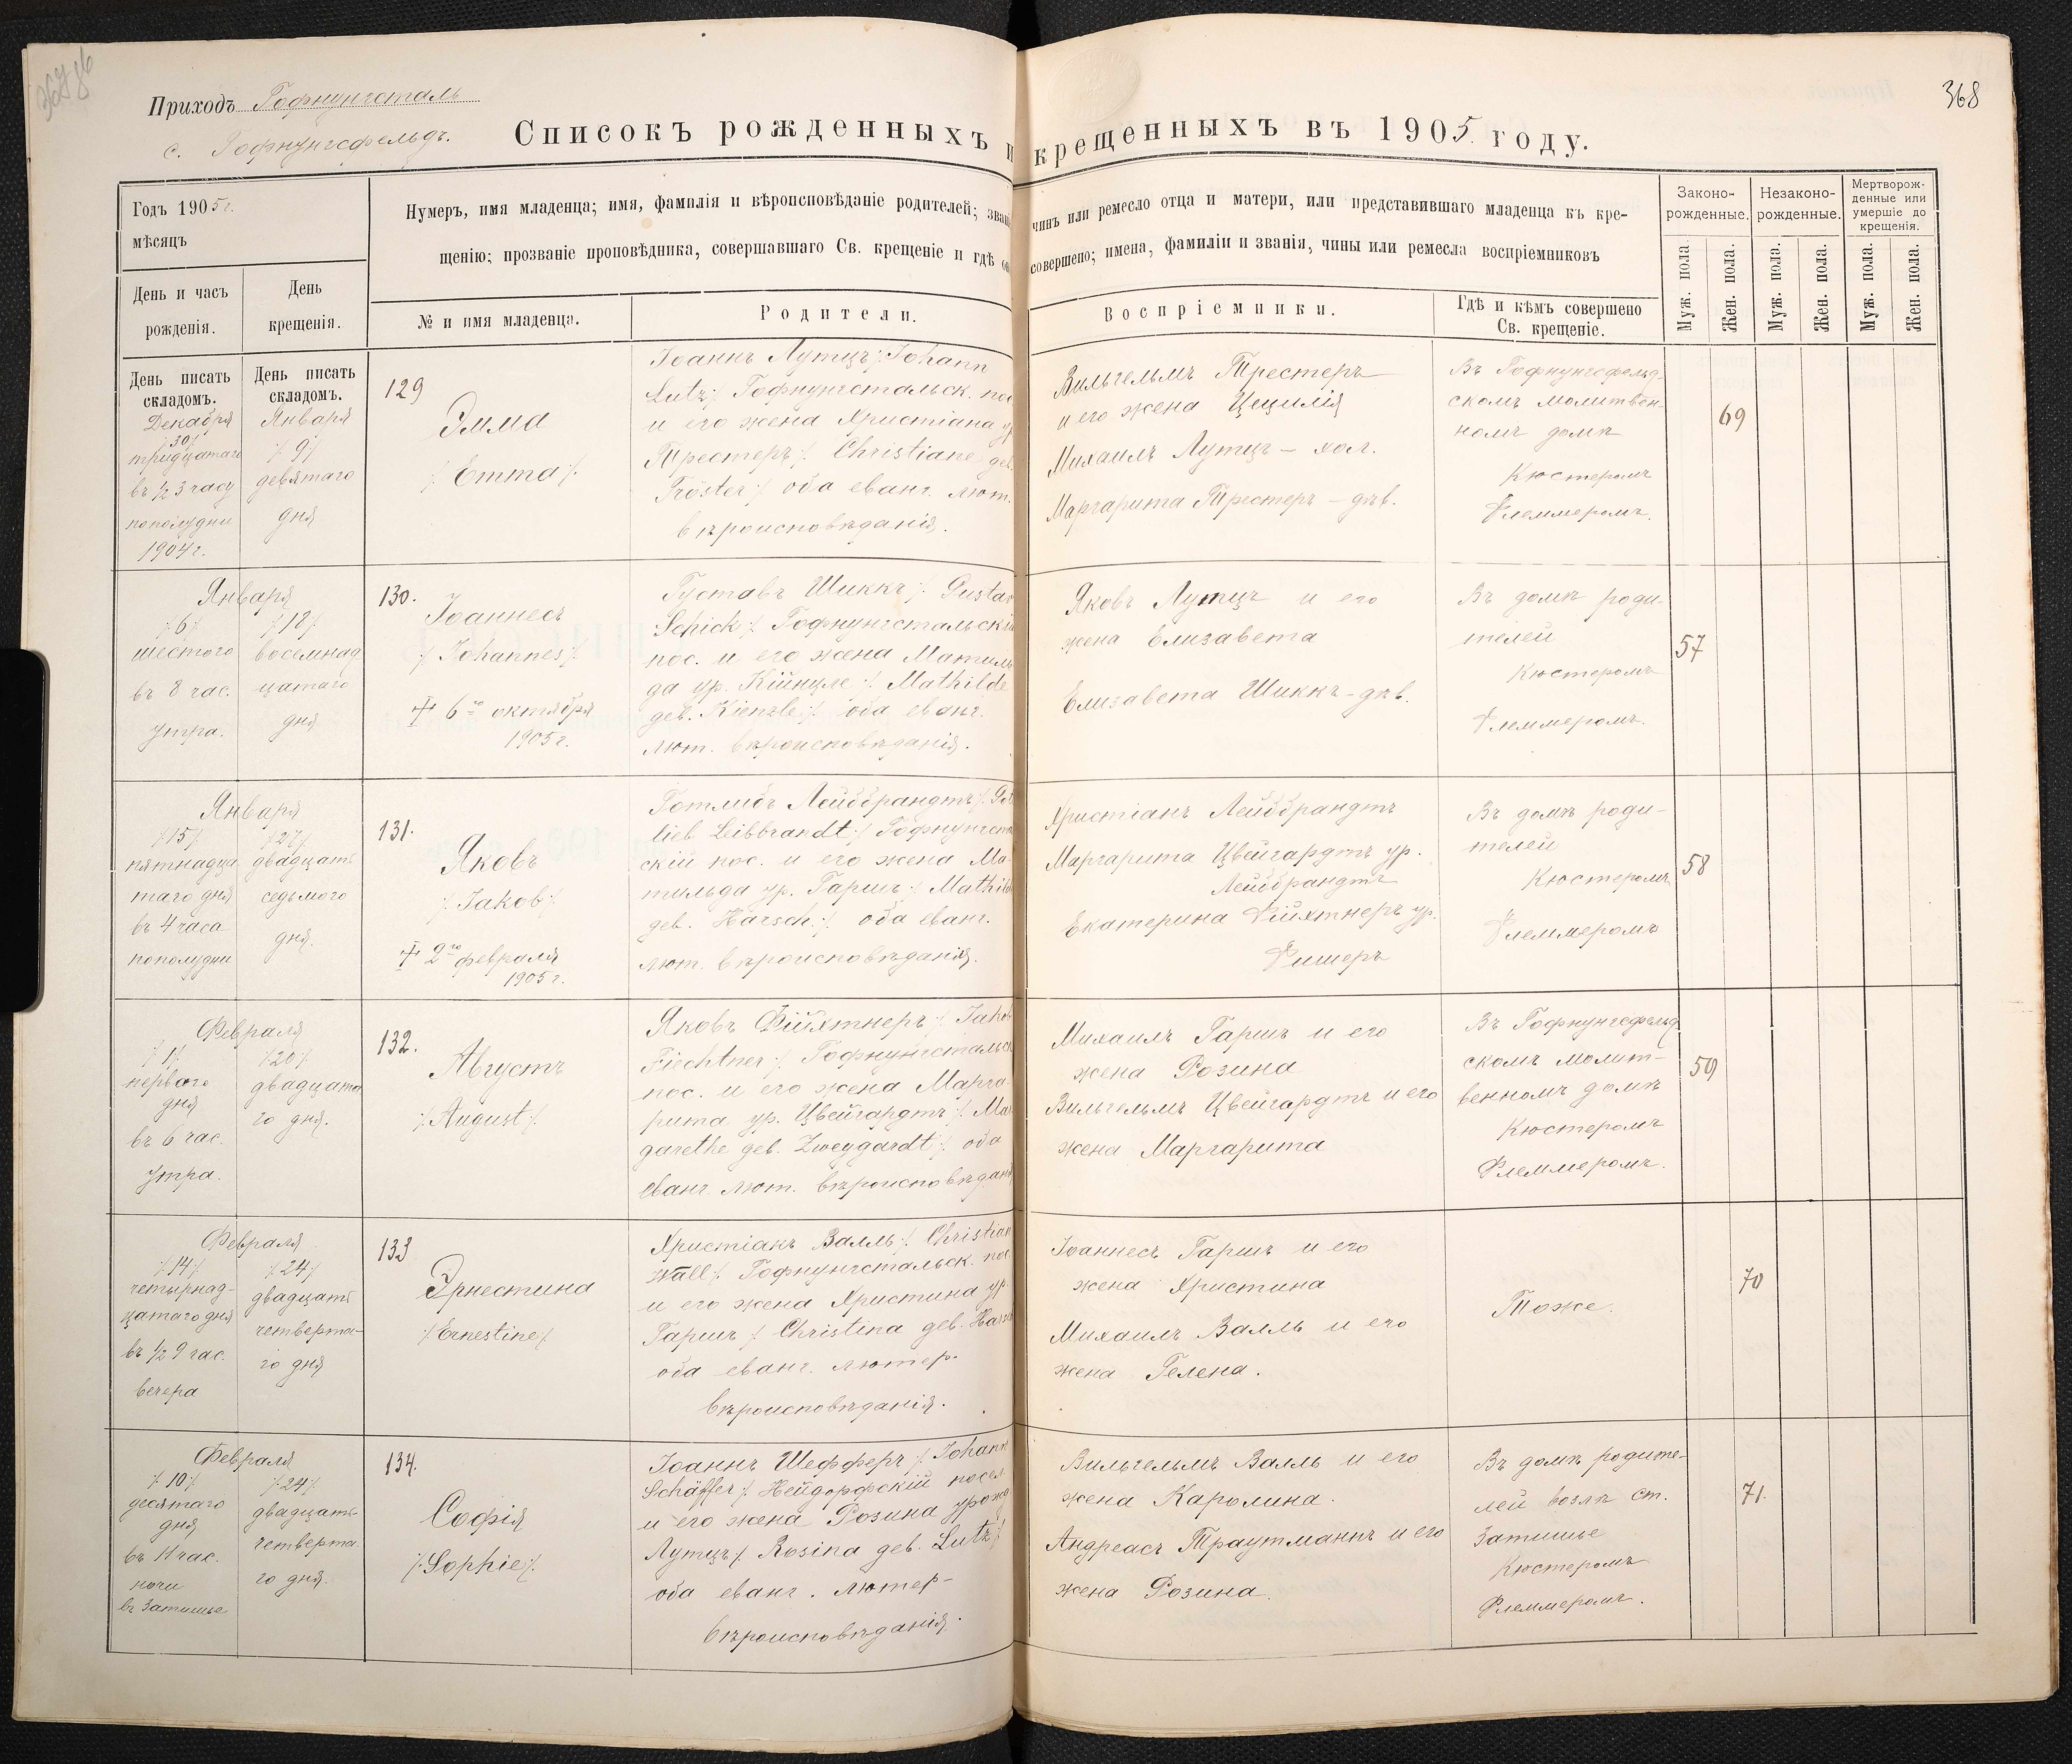 368
Приходъ Гофнунгсталь
с. Гофнунгсфельдъ.
Списокъ рожденныхъ и крещенныхъ въ 1905 году.
Годъ 1905 г.
мѣсяцъ
День и часъ
рожденія.
День
крещенія.
Нумеръ, имя младенца; имя, фамилія и вѣроисповѣданіе родителей; званіе
чинъ или ремесло отца и матери, или представившаго младенца къ кре-
щенію; прозваніе проповѣдника, совершавшаго Св. крещеніе и гдѣ
совершено; имена, фамиліи и званія, чины или ремесла воспріемниковъ
№ и имя младенца.
Родители.
Воспріемники.
Гдѣ и кѣмъ совершено
Св. крещеніе.
Законо-
рожденные.
Незаконо-
рожденные.
Мертворож-
денные или
умершіе до
крещенія.
Муж. пола
Жен. пола.
Муж. пола.
Жен. пола.
Муж. пола.
Жен. пола.
День писать
складомъ.
День писать
складомъ.
Декабря
30
тридцатаго
въ 1/2 3 часу
пополудни
1904 г.
Января
/:9:/
девятаго
дня
129
Эмма
/:Emma:/
Іоаннъ Лутцъ /:Johann
Lutz:/ Гофнунгстальск. пос
и его жена Христіана ур
Трестеръ /: Christiane geb.
Tröster:/ оба еванг. лют.
вѣроисповѣданія.
Вильгельмъ Трестеръ
и его жена Цецилія
Михаилъ Лутцъ – хол.
Маргарита Трестеръ – дѣв.
Въ Гофнунгсфельд-
скомъ молитвен-
номъ домѣ
Кюстеромъ
Флеммеромъ.
69
Января
/:6:/
шестого
въ 8 час.
утра.
/:18:/
восемнад
цатаго
дня
130.
Іоаннесъ
/:Johannes:/
† 6го октября
1905 г.
Густавъ Шиккъ /: Gustav
Schick:/ Гофнунгстальскій
пос. и его жена Матиль
да ур. Кінцле /: Mathilde
geb. Kienzle:/ оба еванг.
лют. вѣроисповѣданія.
Яковъ Лутцъ и его
жена Елизавета
Елизавета Шиккъ – дѣв.
Въ домѣ роди-
телей
Кюстеромъ
Флеммеромъ.
57
Января
/:15:/
пятнадца
таго дня
въ 4 часа
пополудни
/:27:/
двадцать
седьмого
дня.
131.
Яковъ
/:Jakob:/
† 2го февраля
1905 г.
Готлибъ Лейббрандтъ /: Got
lieb Leibbrandt:/ Гофнунгста
скій пос. и его жена Ма-
тильда ур. Гаршъ /: Mathilde
geb. Harsch:/ оба еванг.
лют. вѣроисповѣданія.
Христіанъ Лейббрандтъ
Маргарита Цвейгардтъ ур.
Лейббрандтъ
Екатерина Фійхтнеръ ур.
Фишеръ
Въ домѣ роди-
телей
Кюстеромъ
Флеммеромъ
58
Февраля
/:1:/
перваго
дня
въ 6 час.
утра.
/:20:/
двадцата
го дня.
132.
Августъ
/:August:/
Яковъ Фійхтнеръ /: Jakob
Fiechtner:/ Гофнунгстальск
пос. и его жена Марга-
рита ур. Цвейгардтъ /: Mar
garethe geb. Zweygardt:/ оба
еванг. лют. вѣроисповѣдан
Михаилъ Гаршъ и его
жена Розина
Вильгельмъ Цвейгардтъ и его
жена Маргарита
Въ Гофнунгсфельд
скомъ молит-
венномъ домѣ
Кюстеромъ
Флеммеромъ.
59
Февраля
/:14:/
четырнад-
цатаго дня
въ 1/2 9 час.
вечера
/:24:/
двадцать
четверта-
го дня
133
Эрнестина
/:Ernestine:/
Христіанъ Валль /: Christian
Wall:/ Гофнунгстальск. пос.
и его жена Христина ур.
Гаршъ /: Christina geb. Harsch
оба еванг. лютер.
вѣроисповѣданія.
Іоаннесъ Гаршъ и его
жена Христина
Михаилъ Валль и его
жена Гелена.
Тоже.
70
Февраля
/:10:/
десятаго
дня
въ 11 час.
ночи
въ Затишье
/:24:/
двадцать
четверта
го дня.
134.
Софія
/:Sophie:/
Іоаннъ Шефферъ /: Johann
Schäffer:/ Нейдорфскій посел
и его жена Розина урожд
Лутцъ /: Rosina geb. Lutz:/
оба еванг. лютер-
вѣроисповѣданія.
Вильгельмъ Валль и его
жена Каролина.
Андреасъ Траутманнъ и его
жена Розина.
Въ домѣ родите-
лей возлѣ ст.
Затишье
Кюстеромъ
Флеммеромъ.
71.